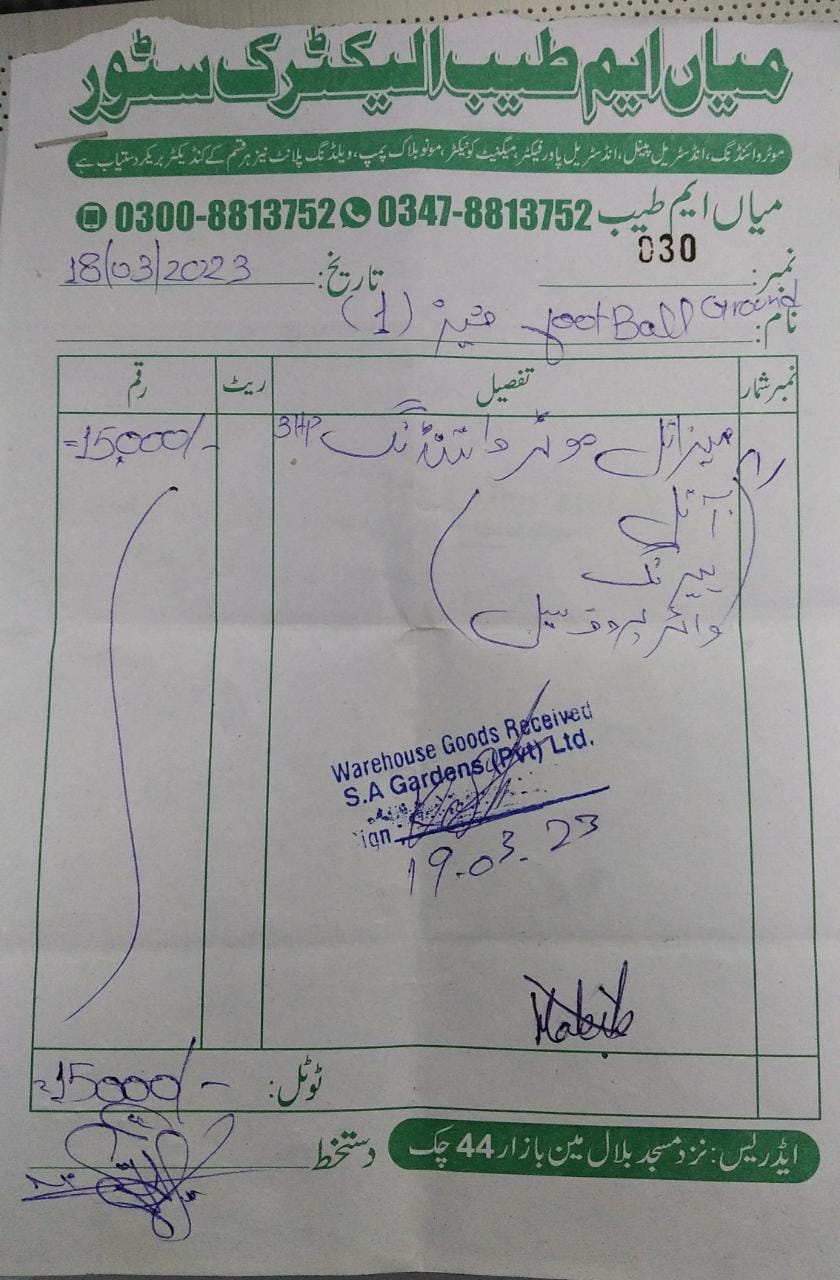 میاں ایم طیب الیکٹرک سٹور
موٹر وائنڈنگ، انڈسٹریل پینل، انڈسٹریل پاور فیکٹر، میگنیٹ کونیکٹر، مونو بلاک پمپ، ویلڈنگ پلانٹ نیز ہر قسم کے کنڈیکٹر بریکر دستیاب ہے
میاں ایم طیب 0347-8813752 0300-8813752
نمبر: 030 تاریخ: 18/03/2023
نام: FootBall Ground فیز (1)
نمبر شمار تفصیل ریٹ رقم
میزائل موٹر وائنڈنگ 3HP =15,000/-
آئل
بیرنگ
واٹر پروف سیل
Warehouse Goods Received
S.A Gardens (Pvt) Ltd.
ign
19-03-23
Habib
ٹوٹل: =15000/-
ایڈریس: نزد مسجد بلال مین بازار 44 چک دستخط